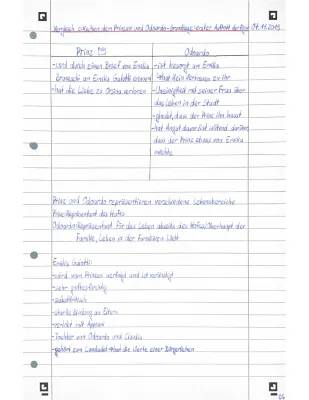 Vergleich zwischen dem Prinzen und Odoardo - Grundlage: erster Auftritt der 07.11.2019
Prinz
Odoardo
- wird durch einen Brief von Emilia
- ist besorgt um Emilia
Bruneschi an Emilia Galotti erinnert
- hat kein Vertrauen zu ihr
- hat die Liebe zu Orsina verloren
- Uneinigkeit mit seiner Frau über
das Leben in der Stadt
- glaubt, dass der Prinz ihn hasst
- hat Angst davor / ist wütend darüber,
dass der Prinz etwas von Emilia
möchte
Prinz und Odoardo repräsentieren verschiedene Lebensbereiche
Prinz: Repräsentant des Hofes
Odoardo: Repräsentant für das Leben abseits des Hofes / Oberhaupt der
Familie, Leben in der familiären Welt
Emilia Galotti:
- wird vom Prinzen verfolgt und ist
- sehr gottesfürchtig
- starke Bindung an Eltern
- verlobt mit Appiani
- Tochter von Odoardo und Claudia
- gehört zum Landadel hat die Werte einer Bürgerlichen